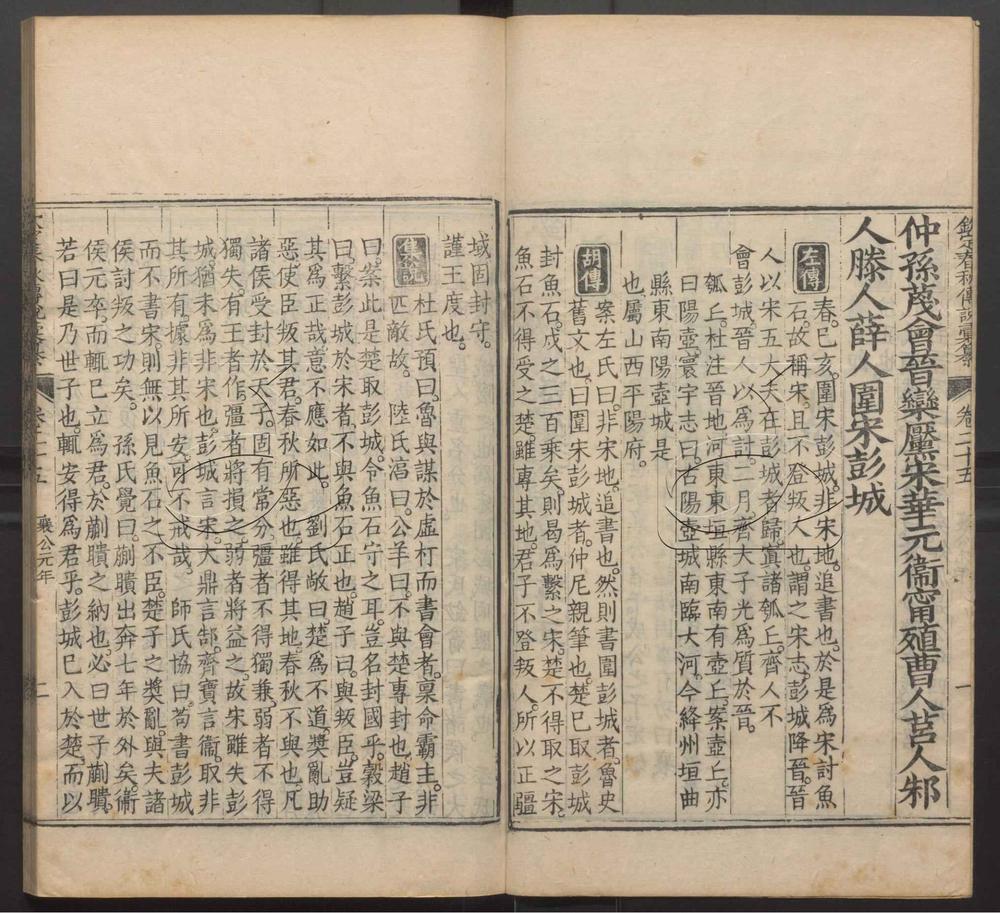 欽定春秋傳說彙纂 卷二十五 一
仲孫蔑會晉欒黶宋華元衞甯殖曹人莒人邾
人滕人薛人圍宋彭城
左傳 春。己亥。圍宋彭城。非宋地。追書也。於是爲宋討魚
石。故稱宋。且不登叛人也。謂之宋志。彭城降晉。晉
人以宋五大夫在彭城者歸。寘諸瓠丘。齊人不
會彭城。晉人以爲討。二月。齊大子光爲質於晉。
瓠丘。杜注晉地。河東東垣縣東南有壺丘。案壺丘。亦
曰陽壺。寰宇志曰。古陽壺城南臨大河。今絳州垣曲
縣東南陽壺城是
也。屬山西平陽府。
胡傳 案左氏曰。非宋地。追書也。然則書圍彭城者。魯史
舊文也。曰圍宋彭城者。仲尼親筆也。楚已取彭城
封魚石。戍之三百乘矣。則曷爲繫之宋。楚不得取之宋。
魚石不得受之楚。雖專其地。君子不登叛人。所以正疆
域。固封守。
謹王度也。
集說 杜氏預曰。魯與謀於虛朾。而書會者。稟命霸主。非
匹敵故。 陸氏淳曰。公羊曰。不與楚專封也。趙子
曰。案此是楚取彭城。令魚石守之耳。豈名封國乎。穀梁
曰。繫彭城於宋者。不與魚石正也。趙子曰。與叛臣。豈疑
其爲正哉。意不應如此。 劉氏敞曰。楚爲不道。奬亂助
惡。使臣叛其君。春秋所惡也。雖得其地。春秋不與也。凡
諸侯受封於天子。固有常分。彊者不得獨兼。弱者不得
獨失。有王者作。彊者將損之。弱者將益之。故宋雖失彭
城。猶未爲非宋也。彭城言宋。大鼎言郜。齊寶言衞。取非
其所有。據非其所安。可不戒哉。 師氏協曰。苟書彭城
而不書宋。則無以見魚石之不臣。楚子之奬亂。與夫諸
侯討叛之功矣。 孫氏覺曰。蒯聵出奔七年於外矣。衞
侯元卒。而輒已立爲君。於蒯聵之納也。必曰世子蒯聵
若曰是乃世子也。輒安得爲君乎。彭城已入於楚。而以
襄公元年